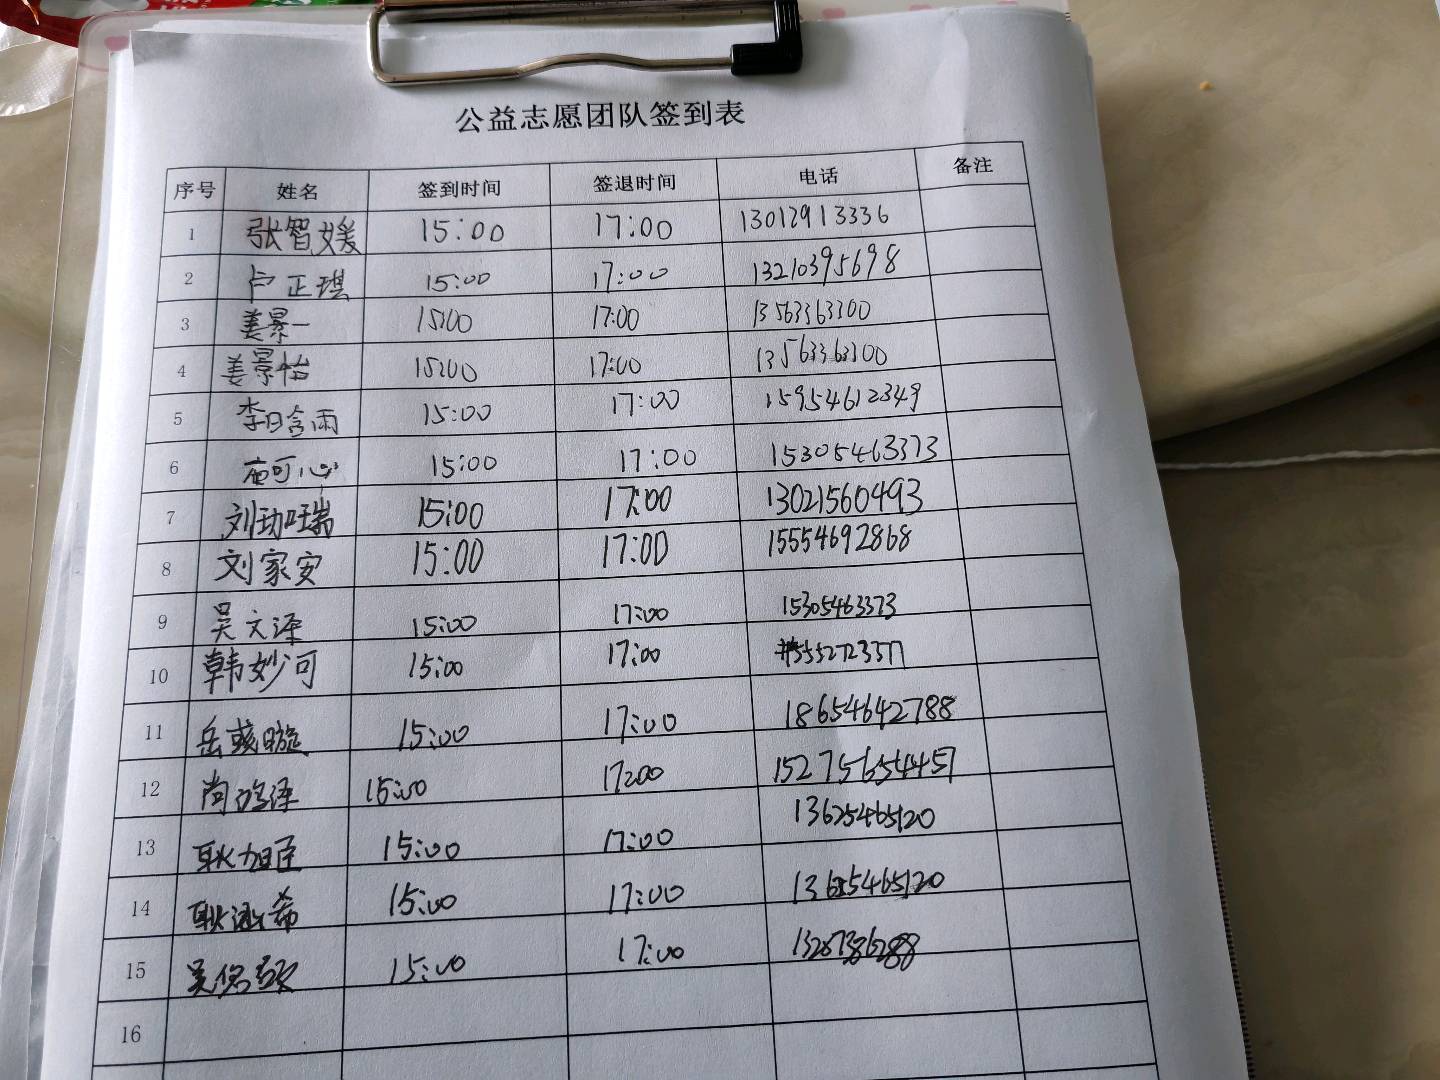 公益志愿团队签到表
序号 姓名 签到时间 签退时间 电话 备注
1 张智媛 15:00 17:00 13012913336
2 卢正琪 15:00 17:00 13210395698
3 姜景一 15:00 17:00 13563363300
4 姜景怡 15:00 17:00 13563363300
5 李晗雨 15:00 17:00 15954612349
6 可心 15:00 17:00 15305463373
7 刘 瑞 15:00 17:00 13021560493
8 刘家安 15:00 17:00 15554692868
9 吴文泽 15:00 17:00 15305463373
10 韩妙可 15:00 17:00
11 岳彧璇 15:00 17:00 18654642788
12 尚 泽 15:00 17:00 15275654457
13 耿 15:00 17:00 13625465120
14 耿 希 15:00 17:00 13625465120
15 吴 15:00 17:00
16